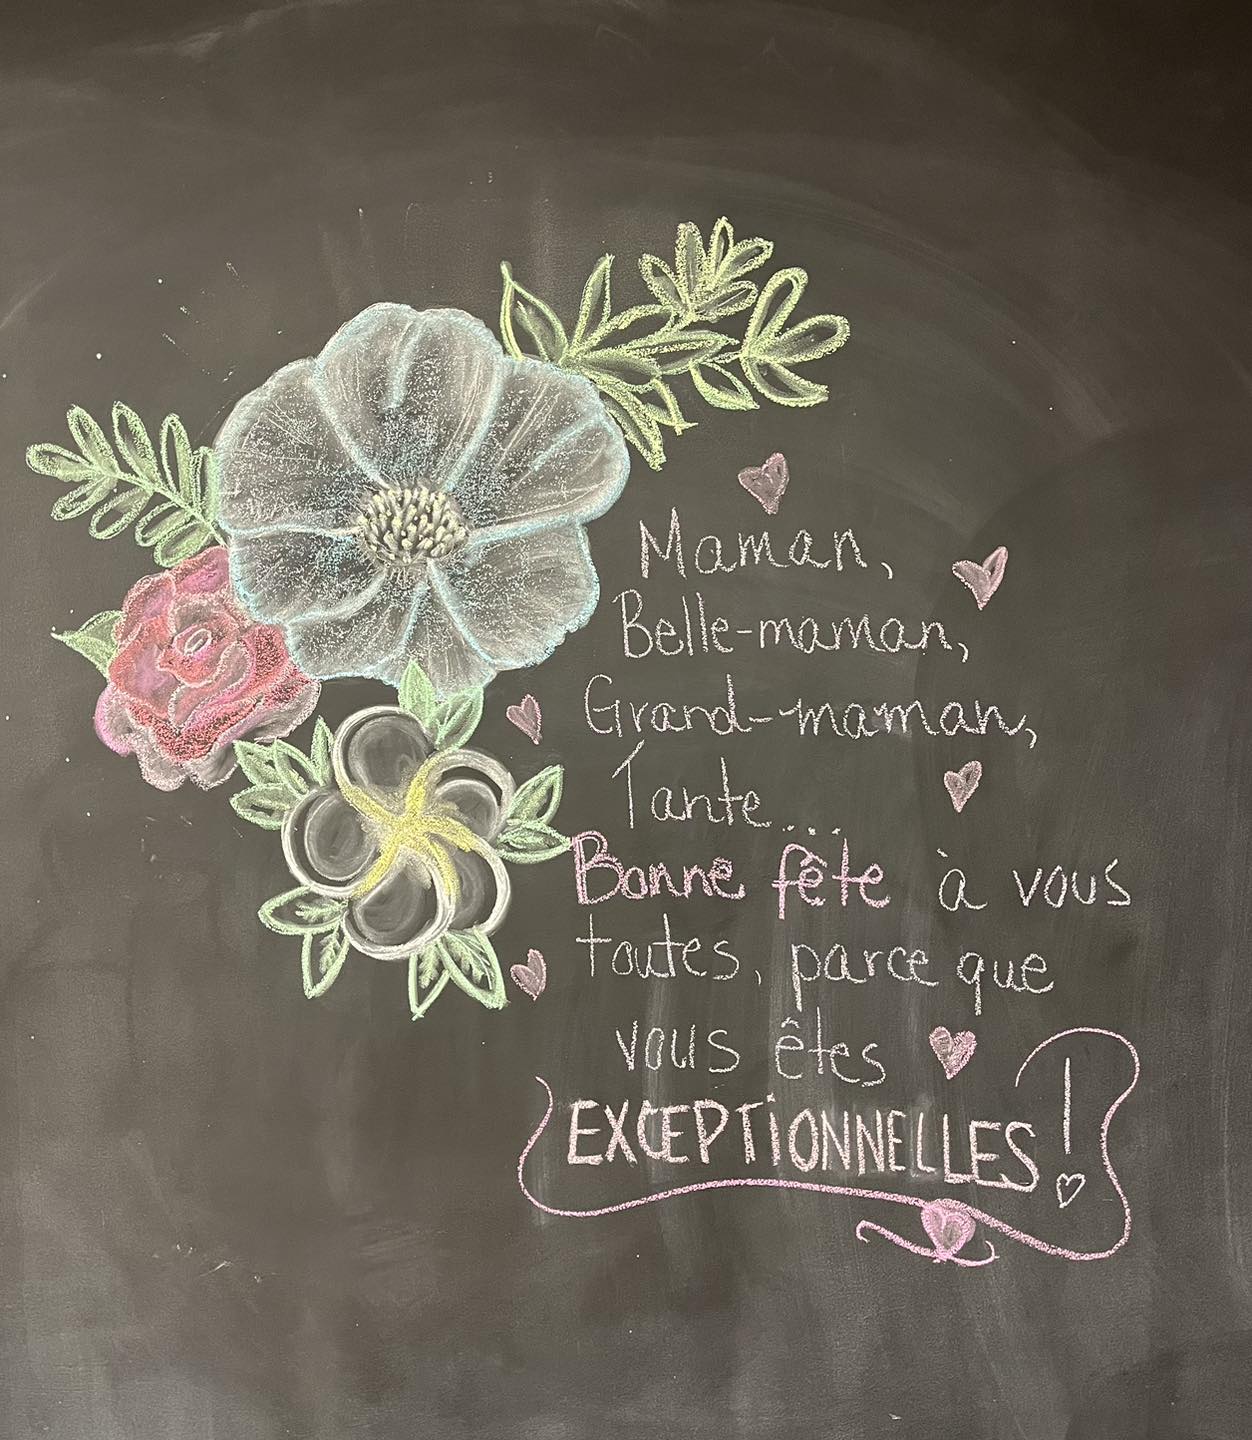 Maman,
Belle-maman,
Grand-maman,
Tante...
Bonne fête à vous
toutes, parce que
vous êtes
EXCEPTiONNELLES!